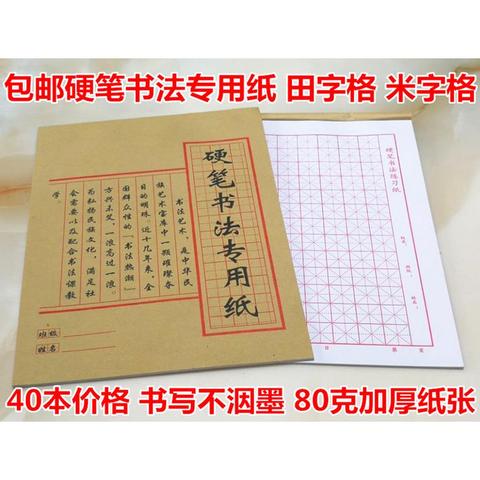 包邮硬笔书法专用纸 田字格 米字格
硬笔书法专用纸
书法艺术，是中华民
族艺术宝库中一颗璀璨夺
目的明珠。近十几年来，全
国群众性的“书法热潮”
方兴未艾，一浪高过一浪。
为弘扬民族文化，满足社
会需要以及配合书法课教
学。
班级
姓名
硬笔书法练习纸
日 第 页
40本价格 书写不洇墨 80克加厚纸张